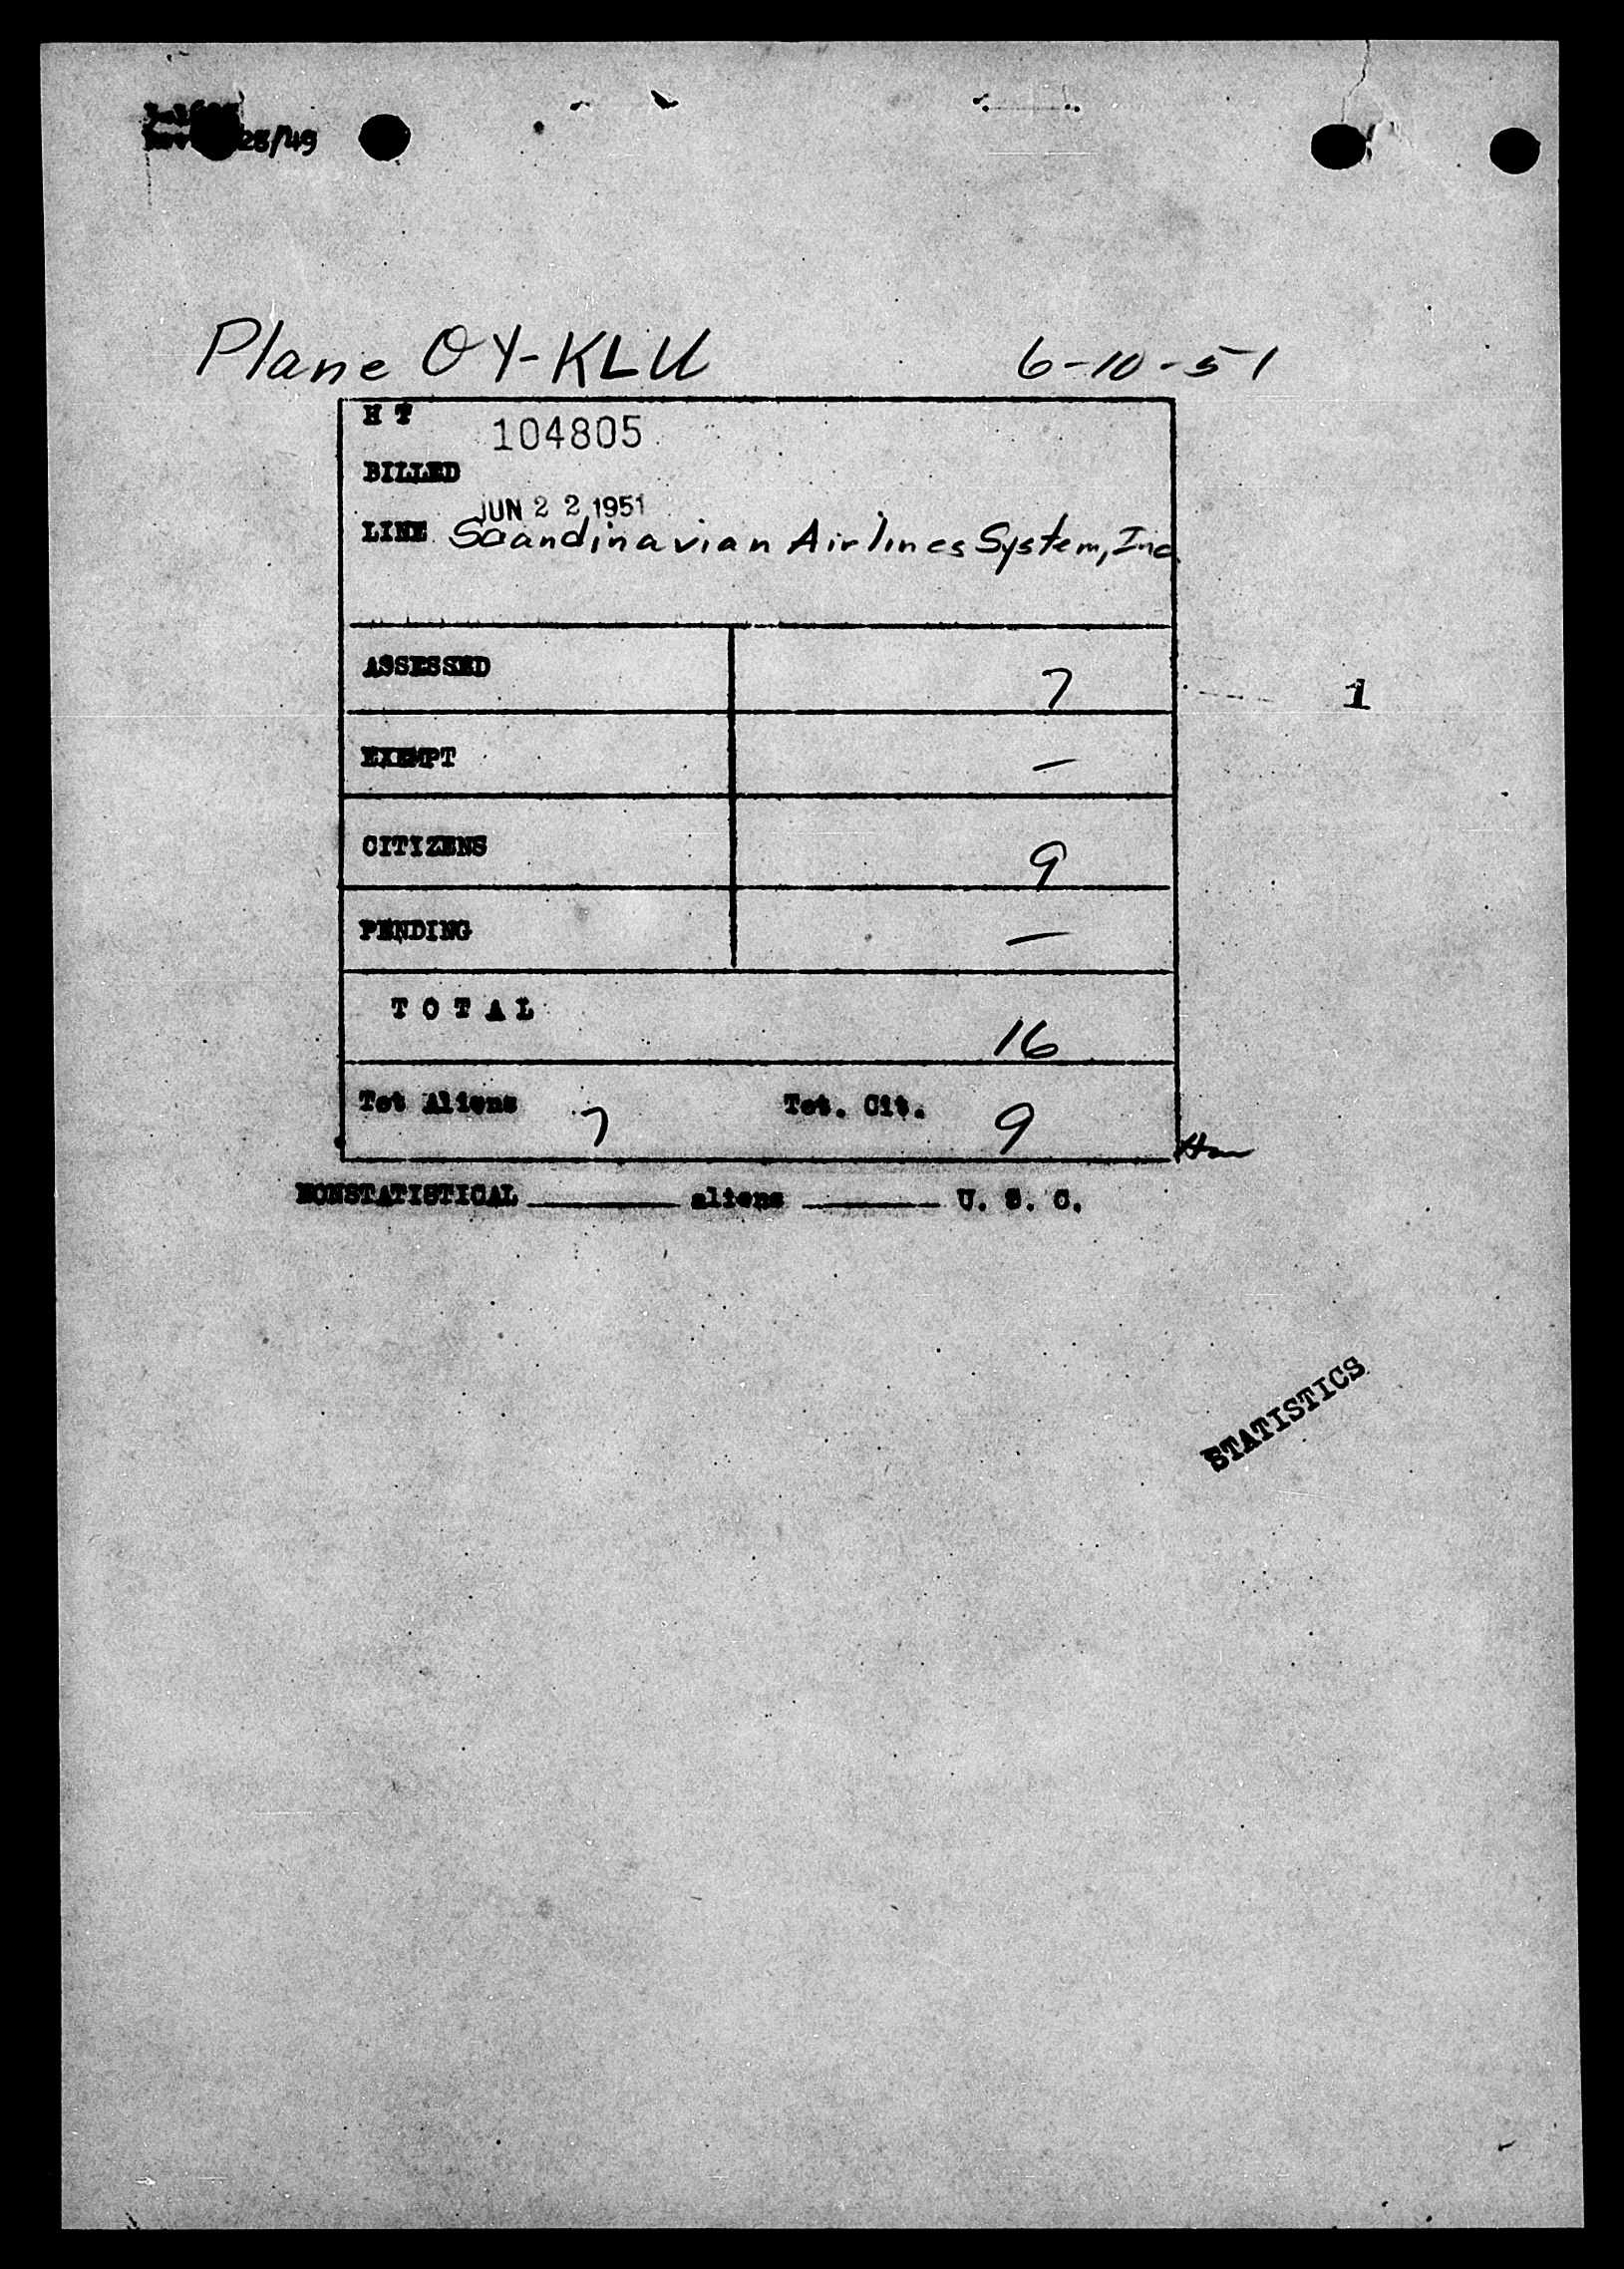 28/49
Plane OY-KLU 6-10-51
H T 104805
BILLED
JUN 22 1951
LINE Scandinavian Airlines System, Inc
ASSESSED 7 1
EXEMPT —
CITIZENS 9
PENDING —
TOTAL 16
Tot Aliens 7 Tot. Cit. 9
NONSTATISTICAL ________ aliens ________ U. S. C.
STATISTICS